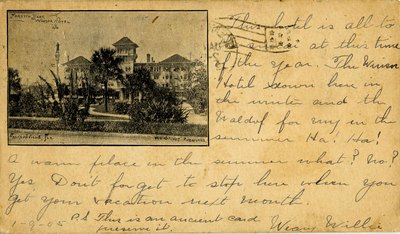 This hotel is all to
at this time
of the year. The Winsor
Hotel down here in
the winter and the
Waldorf for my in the
summer Ha! Ha!
A warm place in the summer what? No?
Yes, Don't forget to stop here when you
get your vacation next month.
1-9-05 P.S. This is an ancient card
preserve it.
Weary Willie